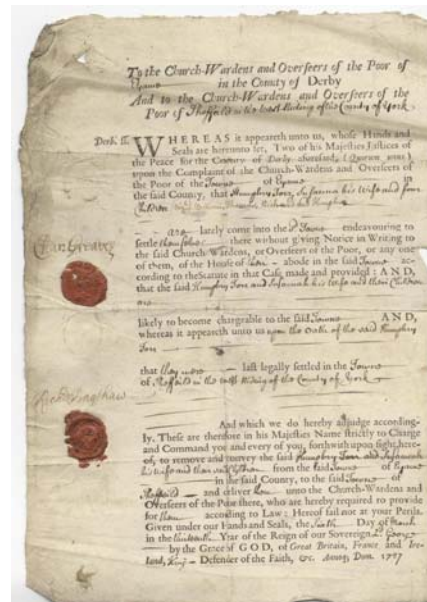 To the Church-Wardens and Overseers of the Poor of
Eyame in the County of Derby
And to the Church-Wardens and Overseers of the
Poor of Sheffeild in the West Riding of the County of York
Derb. ss. WHEREAS it appeareth unto us, whose Hands and
Seals are hereunto set, Two of his Majesties Justices of
the Peace for the County of Derby aforesaid, (Quorum unus)
upon the Complaint of the Church-Wardens and Overseers of
the Poor of the Towne of Eyame in
the said County, that Humphry Torr, Susannah his Wife and four
Children
are lately come into the sd Towne endeavouring to
settle there without giving Notice in Writing to
the said Church-Wardens, or Overseers of the Poor, or any one
of them, of the House of their abode in the said Towne ac-
cording to the Statute in that Case made and provided: AND,
that the said Humphry Torr and Susannah his Wife and their Children
are
likely to become chargeable to the said Towne AND,
whereas it appeareth unto us upon the Oath of the said Humphry
Torr
that they were last legally settled in the Towne
of Sheffeild in the West Riding of the County of York
And which we do hereby adjudge according-
ly. These are therefore in his Majesties Name strictly to Charge
and Command you and every of you, forthwith upon sight here-
of, to remove and convey the said Humphry Torr and Susannah
his Wife and their said Children from the said Towne of Eyame
in the said County, to the said Towne of
Sheffeild and deliver them unto the Church-Wardens and
Overseers of the Poor there, who are hereby required to provide
for them according to Law: Hereof fail not at your Perils.
Given under our Hands and Seals, the Sixth Day of March
in the Year of the Reign of our Sovereign Ld George
by the Grace of GOD, of Great Britain, France and Ire-
land, King Defender of the Faith, &c. Annoq; Dom.